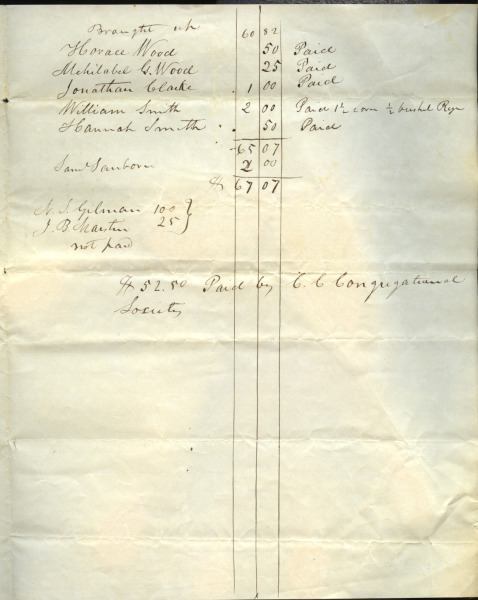 Brought up 60 82
Horace Wood 50 Paid
Mehitabel G. Wood 25 Paid
Jonathan Clarke 1 00 Paid
William Smith 2 00 Paid 1½ corn ½ bushel Rye
Hannah Smith 50 Paid
65 07
Saml Sanborn 2 00
$ 67 07
N. S. Gilman 100
J. B. Marston 25
not paid
$52.50 Paid by C. C Congregational
Society